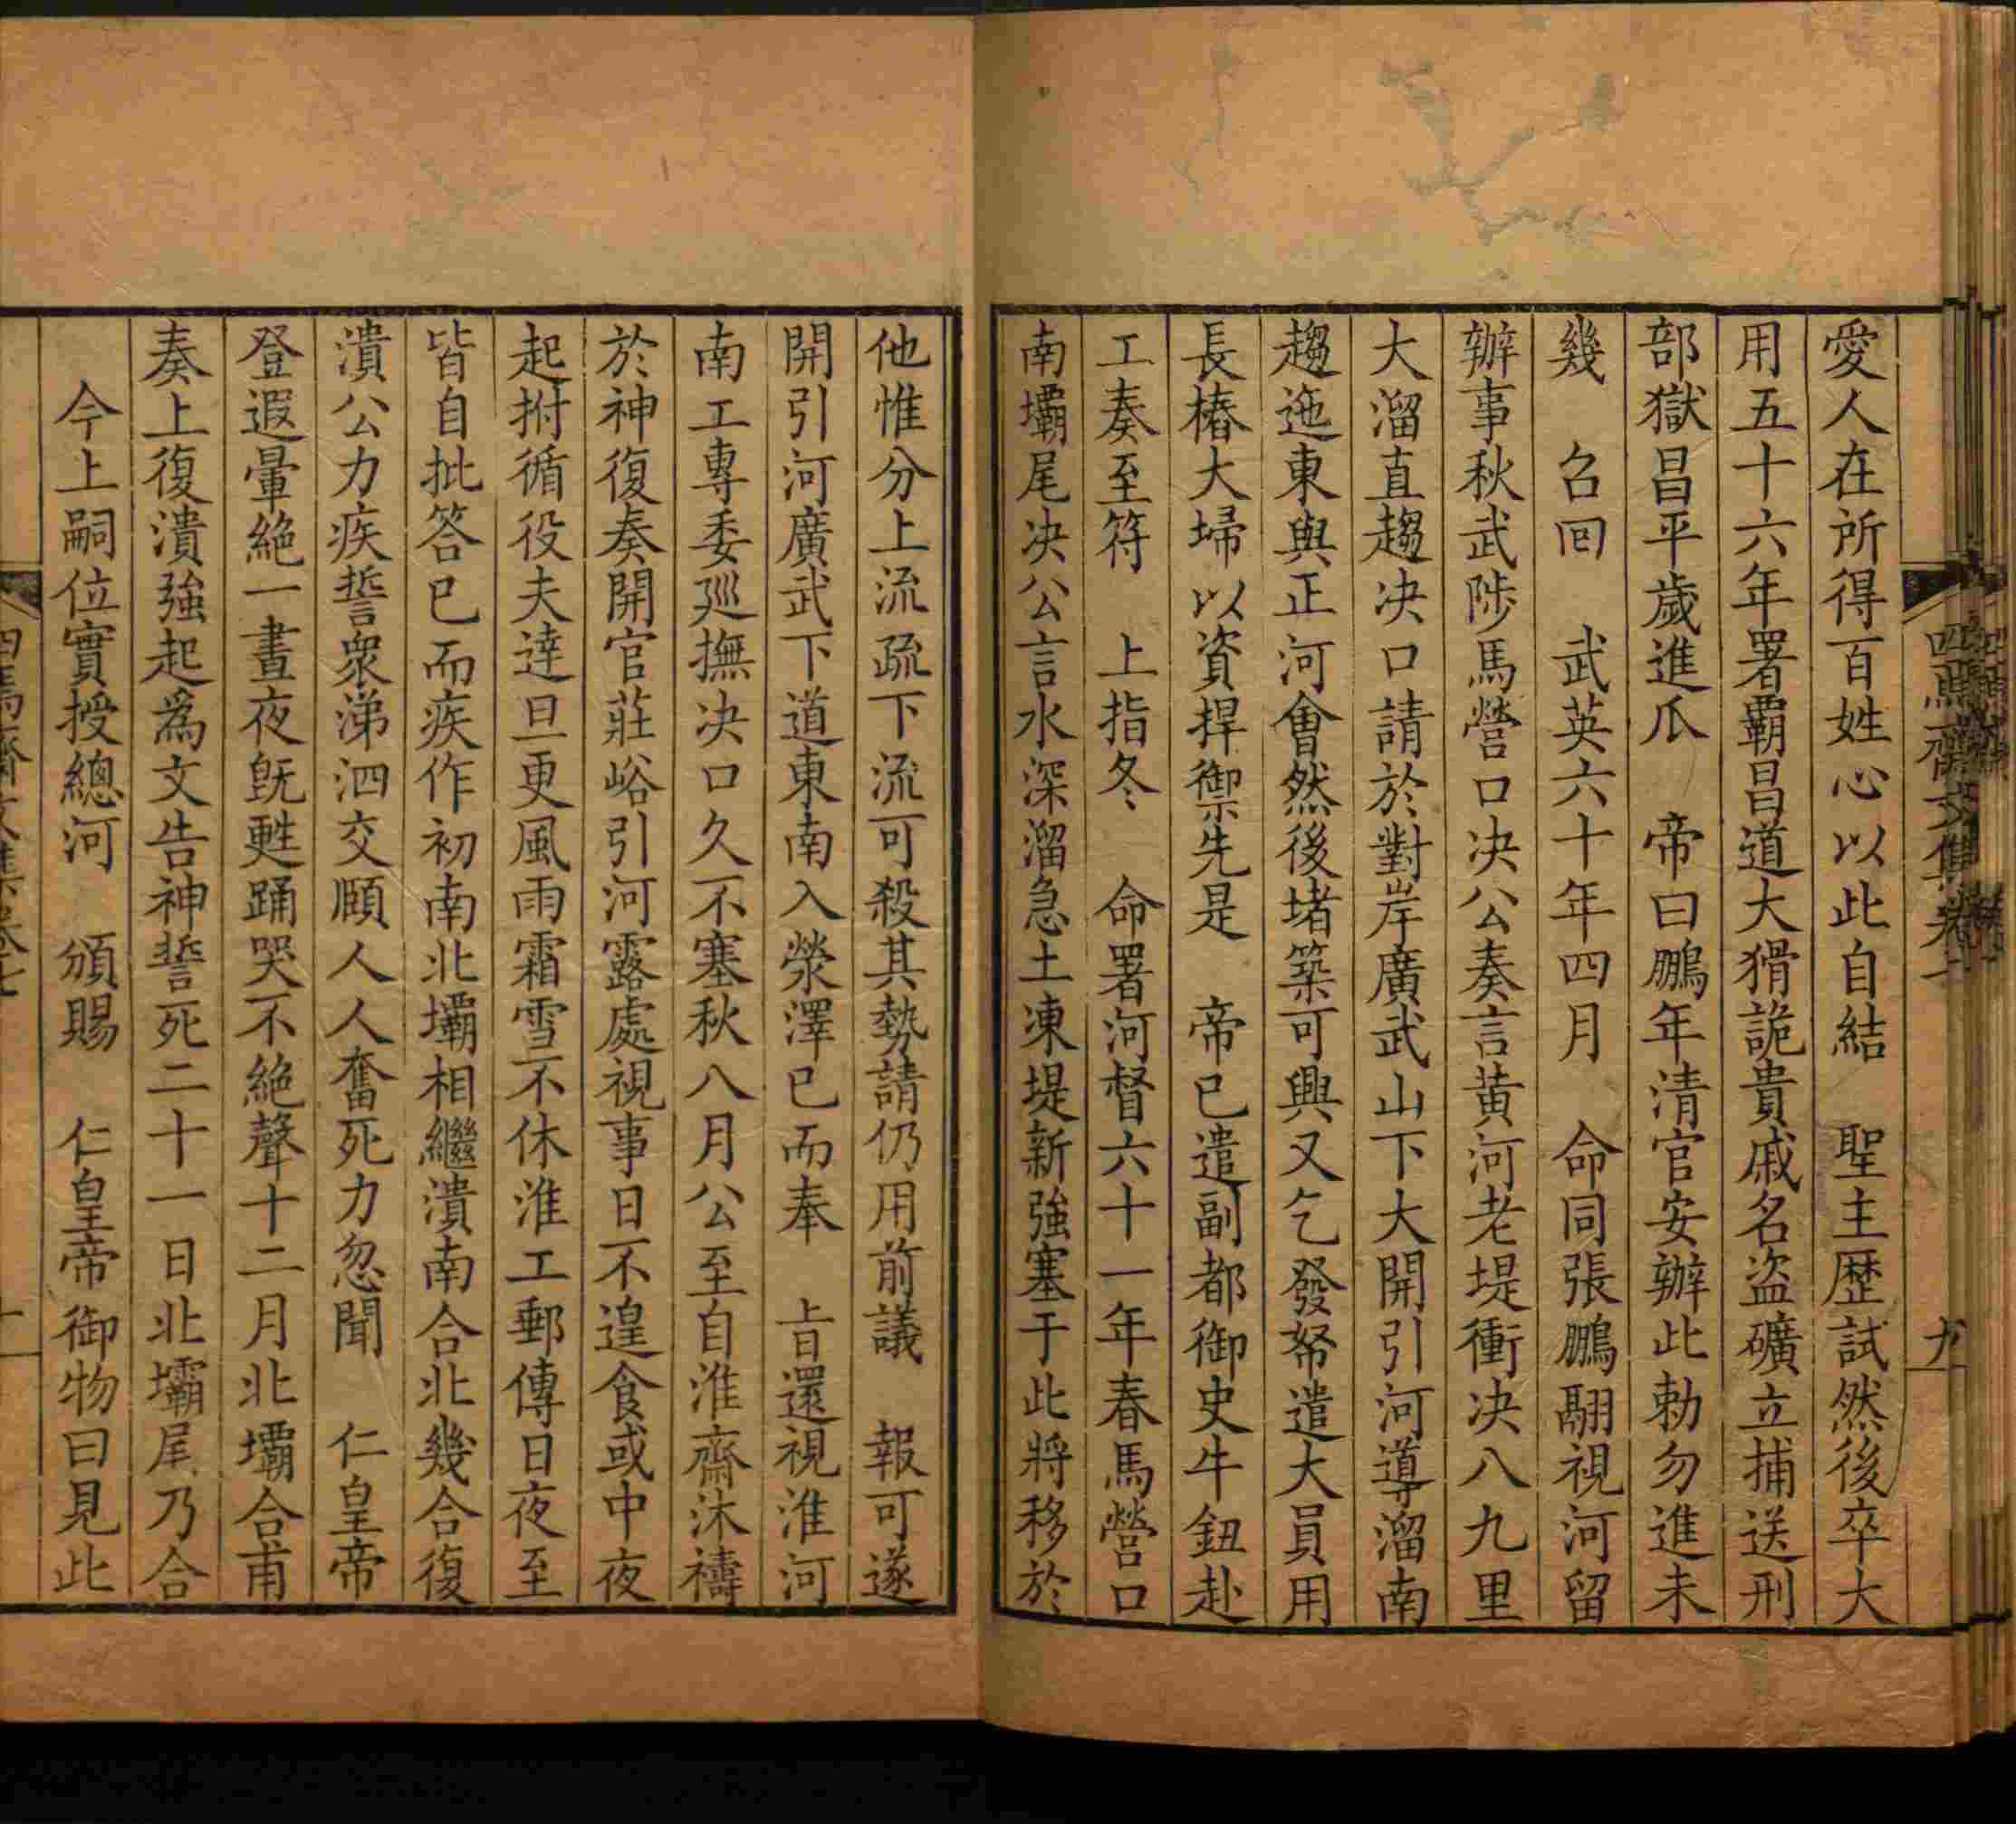 愛人在所得百姓心以此自結　聖主歴試然後卒大
用五十六年署霸昌道大猾詭貴戚名盜礦立捕送刑
部獄昌平歲進瓜　帝曰鵬年清官安辦此勅勿進未
幾　召回　武英六十年四月　命同張鵬翮視河留
辦事秋武陟馬營口决公奏言黄河老堤衝决八九里
大溜直趨决口請於對岸廣武山下大開引河導溜南
趨迤東與正河會然後堵築可興又乞發帑遣大員用
長樁大埽以資捍禦先是　帝已遣副都御史牛鈕赴
工奏至符　上指冬　命署河督六十一年春馬營口
南壩尾决公言水深溜急土凍堤新強塞于此將移於
他惟分上流疏下流可殺其勢請仍用前議　報可遂
開引河廣武下道東南入滎澤已而奉　旨還視淮河
南工專委廵撫决口久不塞秋八月公至自淮齋沐禱
於神復奏開官莊峪引河露處視事日不遑食或中夜
起拊循役夫達旦更風雨霜雪不休淮工郵傳日夜至
皆自批答已而疾作初南北壩相繼潰南合北幾合復
潰公力疾誓衆涕泗交頤人人奮死力忽聞　仁皇帝
登遐暈絶一晝夜旣甦踊哭不絶聲十二月北壩合甫
奏上復潰強起爲文告神誓死二十一日北壩尾乃合
今上嗣位實授總河　頒賜　仁皇帝御物曰見此